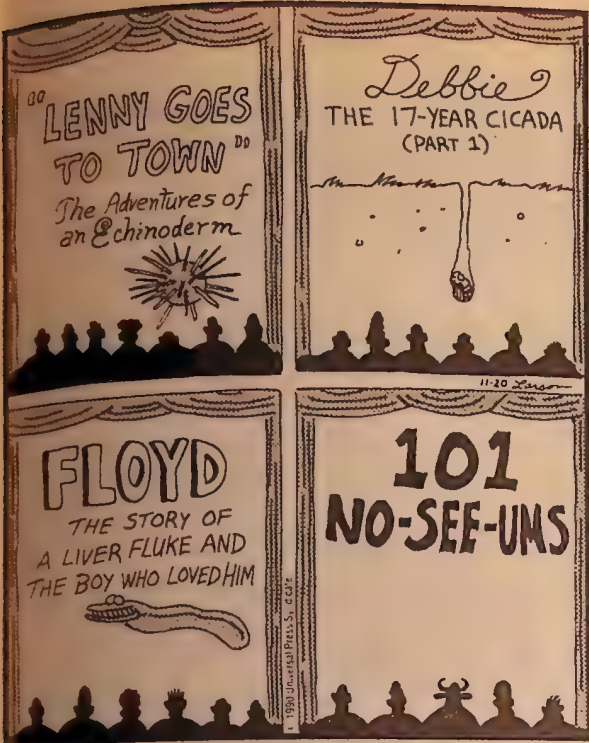 "LENNY GOES
TO TOWN"
The Adventures of
an Echinoderm
Debbie
THE 17-YEAR CICADA
(PART 1)
11-20 Larson
FLOYD
THE STORY OF
A LIVER FLUKE AND
THE BOY WHO LOVED HIM
101
NO-SEE-UMS
1990 Universal Press Syndicate